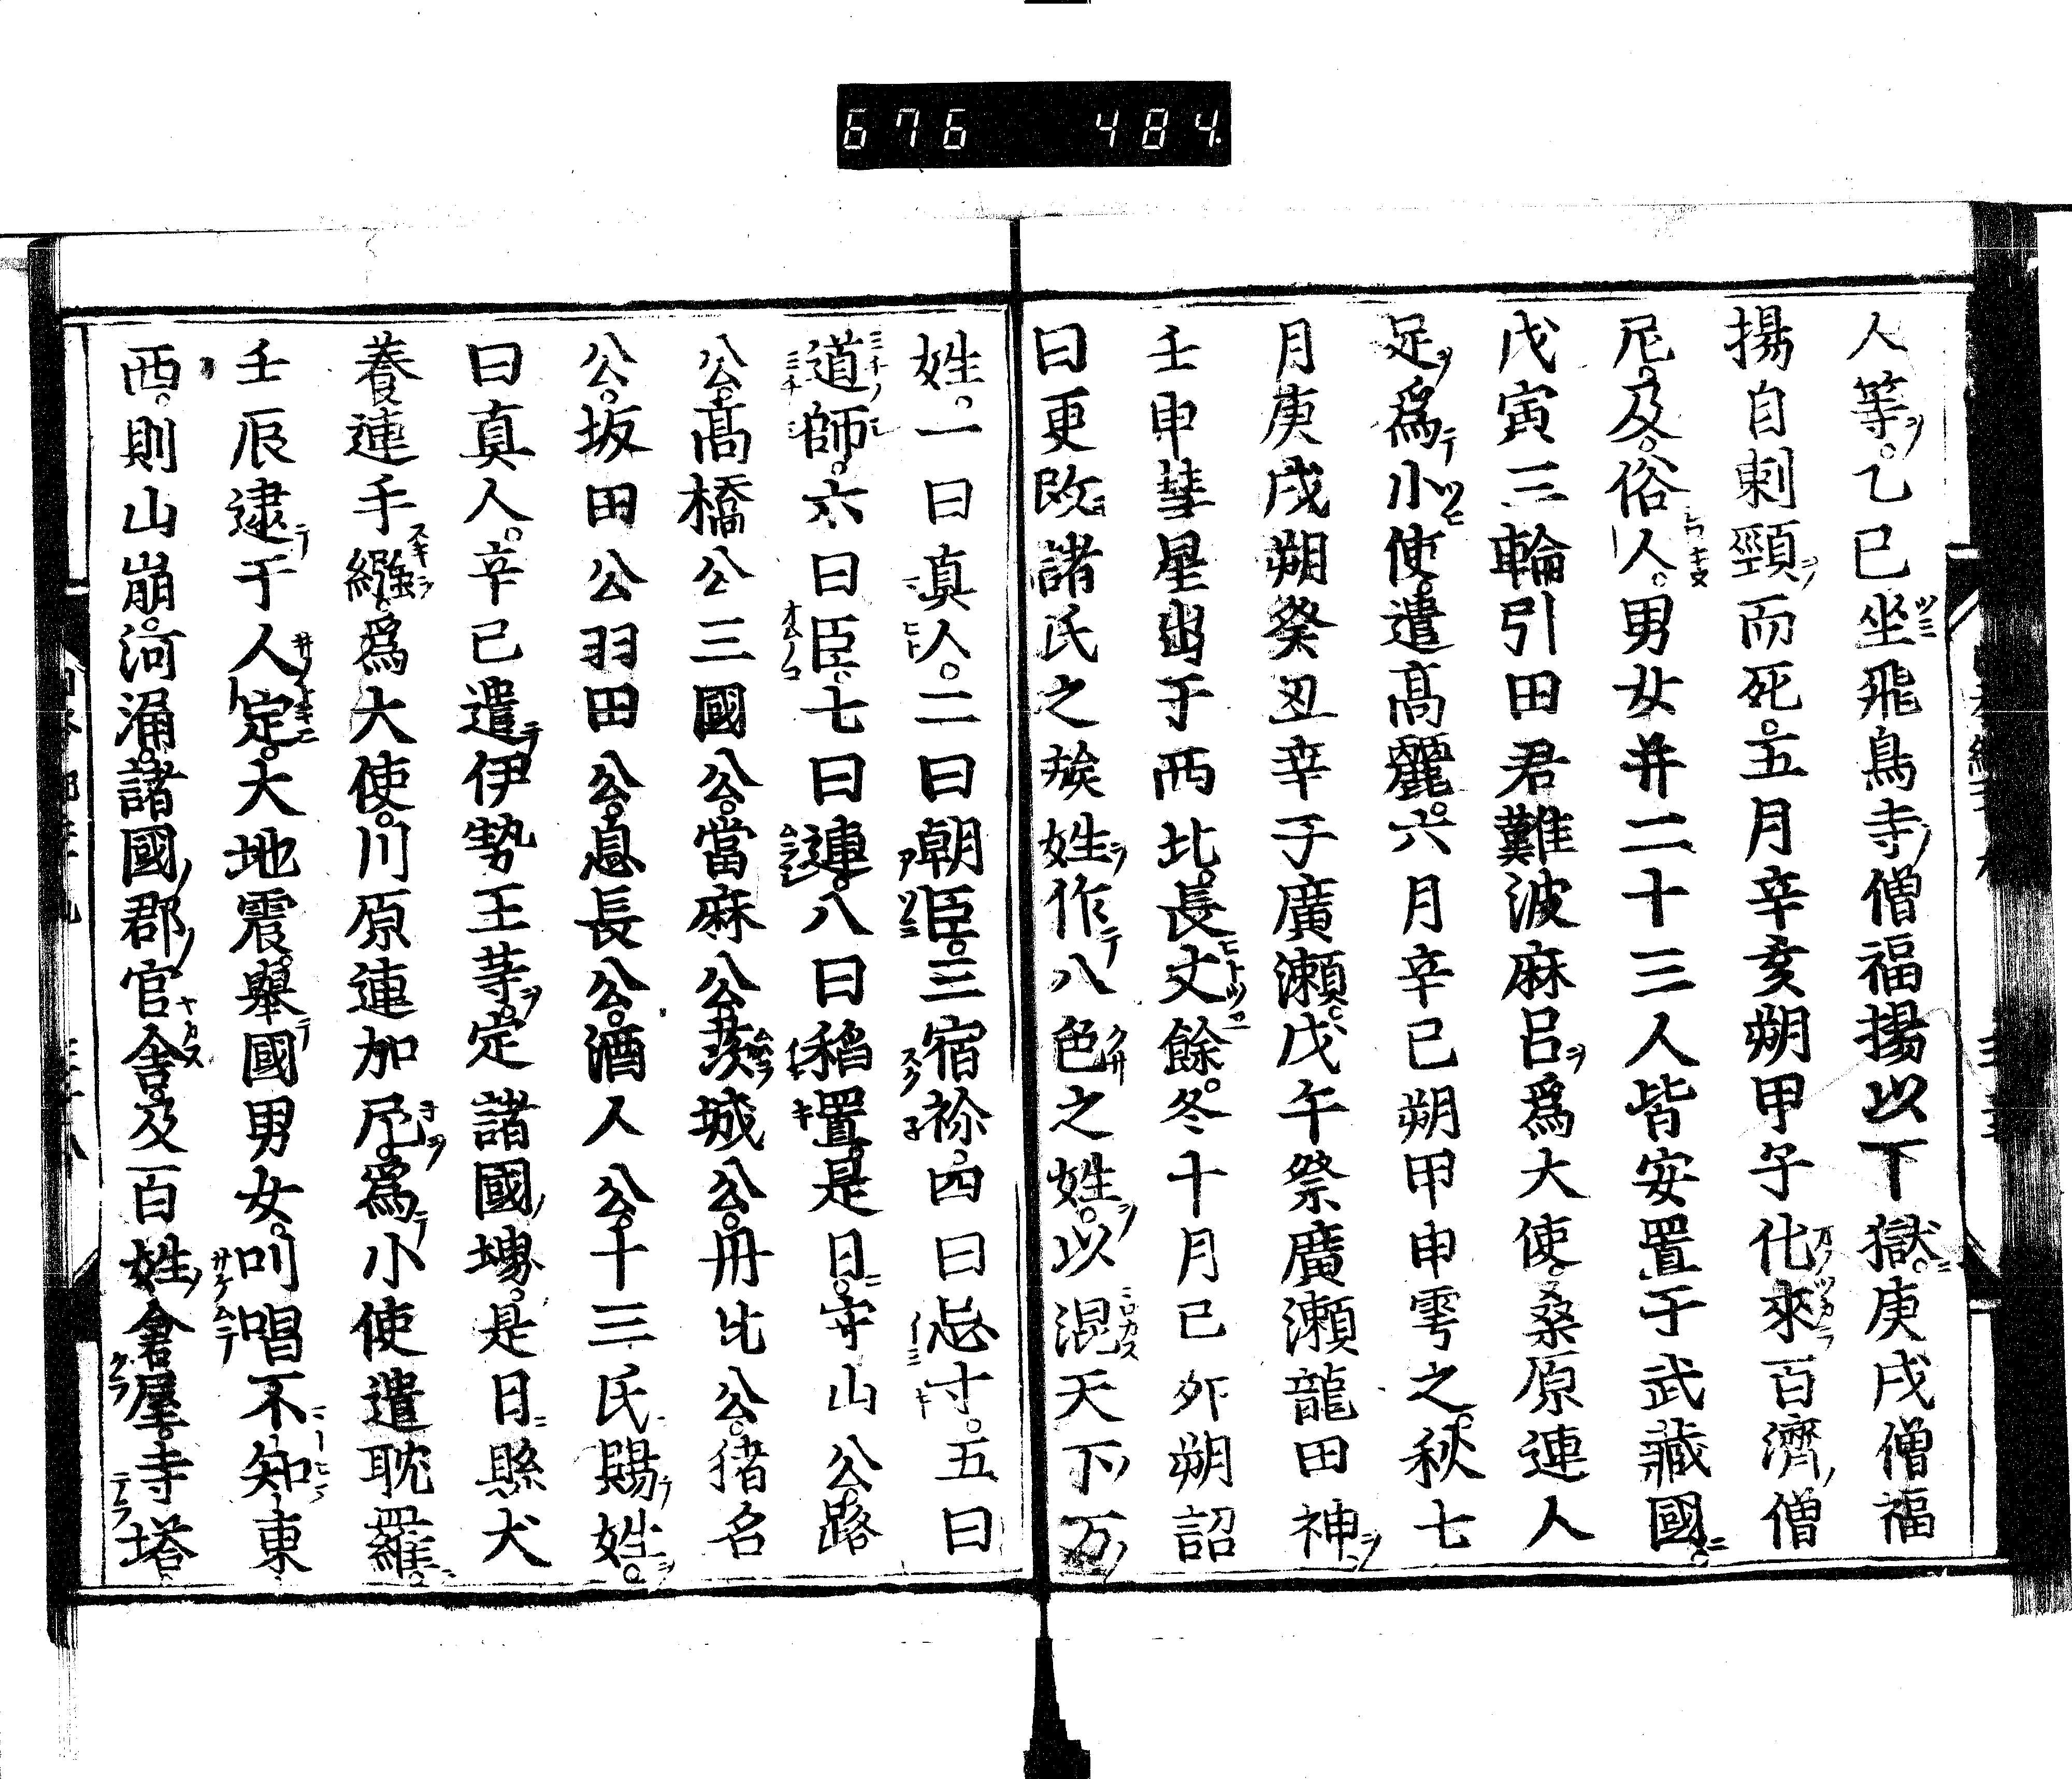 676 484
人等乙巳坐飛鳥寺僧福揚以下獄庚戌僧福
揚自刺頸而死五月辛亥朔甲子化來百濟僧
尼及俗人男女并二十三人皆安置于武藏國
戊寅三輪引田君難波麻呂爲大使桑原連人
足爲小使遣髙麗六月辛巳朔甲申雩之秋七
月庚戌朔癸丑幸于廣瀬戊午祭廣瀬龍田神
壬申彗星出于西北長丈餘冬十月己夘朔詔
曰更改諸氏之族姓作八色之姓以混天下万
姓一曰真人二曰朝臣三宿祢四曰忌寸五曰
道師六曰臣七曰連八曰稻置是日守山公路
公髙橋公三國公當麻公茨城公丹比公猪名
公坂田公羽田公息長公酒人公十三氏賜姓
曰真人辛巳遣伊勢王等定諸國堺是日縣犬
養連手繦爲大使川原連加尼爲小使遣耽羅
壬辰逮于人定大地震舉國男女叫唱不知東
西則山崩河涌諸國郡官舎及百姓倉屋寺塔